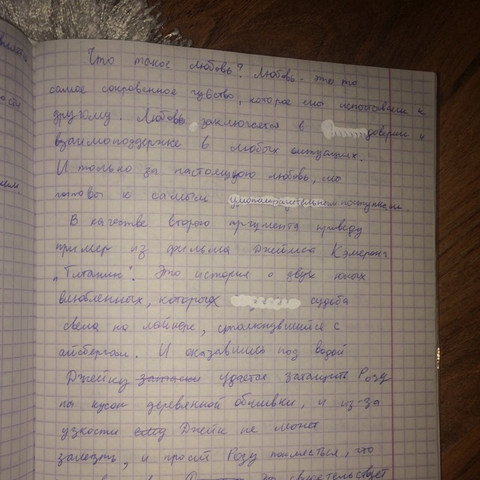 Что такое любовь? Любовь - это то
самое сокровенное чувство, которое мы испытываем к
другому. Любовь заключается в доверии и
взаимоподдержке в любых ситуациях.
И только за настоящую любовь, мы
готовы к самым умопомрачительным поступкам
В качестве второго аргумента приведу
пример из фильма Джеймса Кэмерона
„Титаник". Это история о двух юных
влюбленных, которых судьба
свела на лайнере, столкнувшийся с
айсбергом. И оказавшись под водой
Джеку удается затащить Розу
на кусок деревянной обшивки, и из-за
узкости Джек не может
залезть, и просит Розу поклясться, что
Это свидетельствует